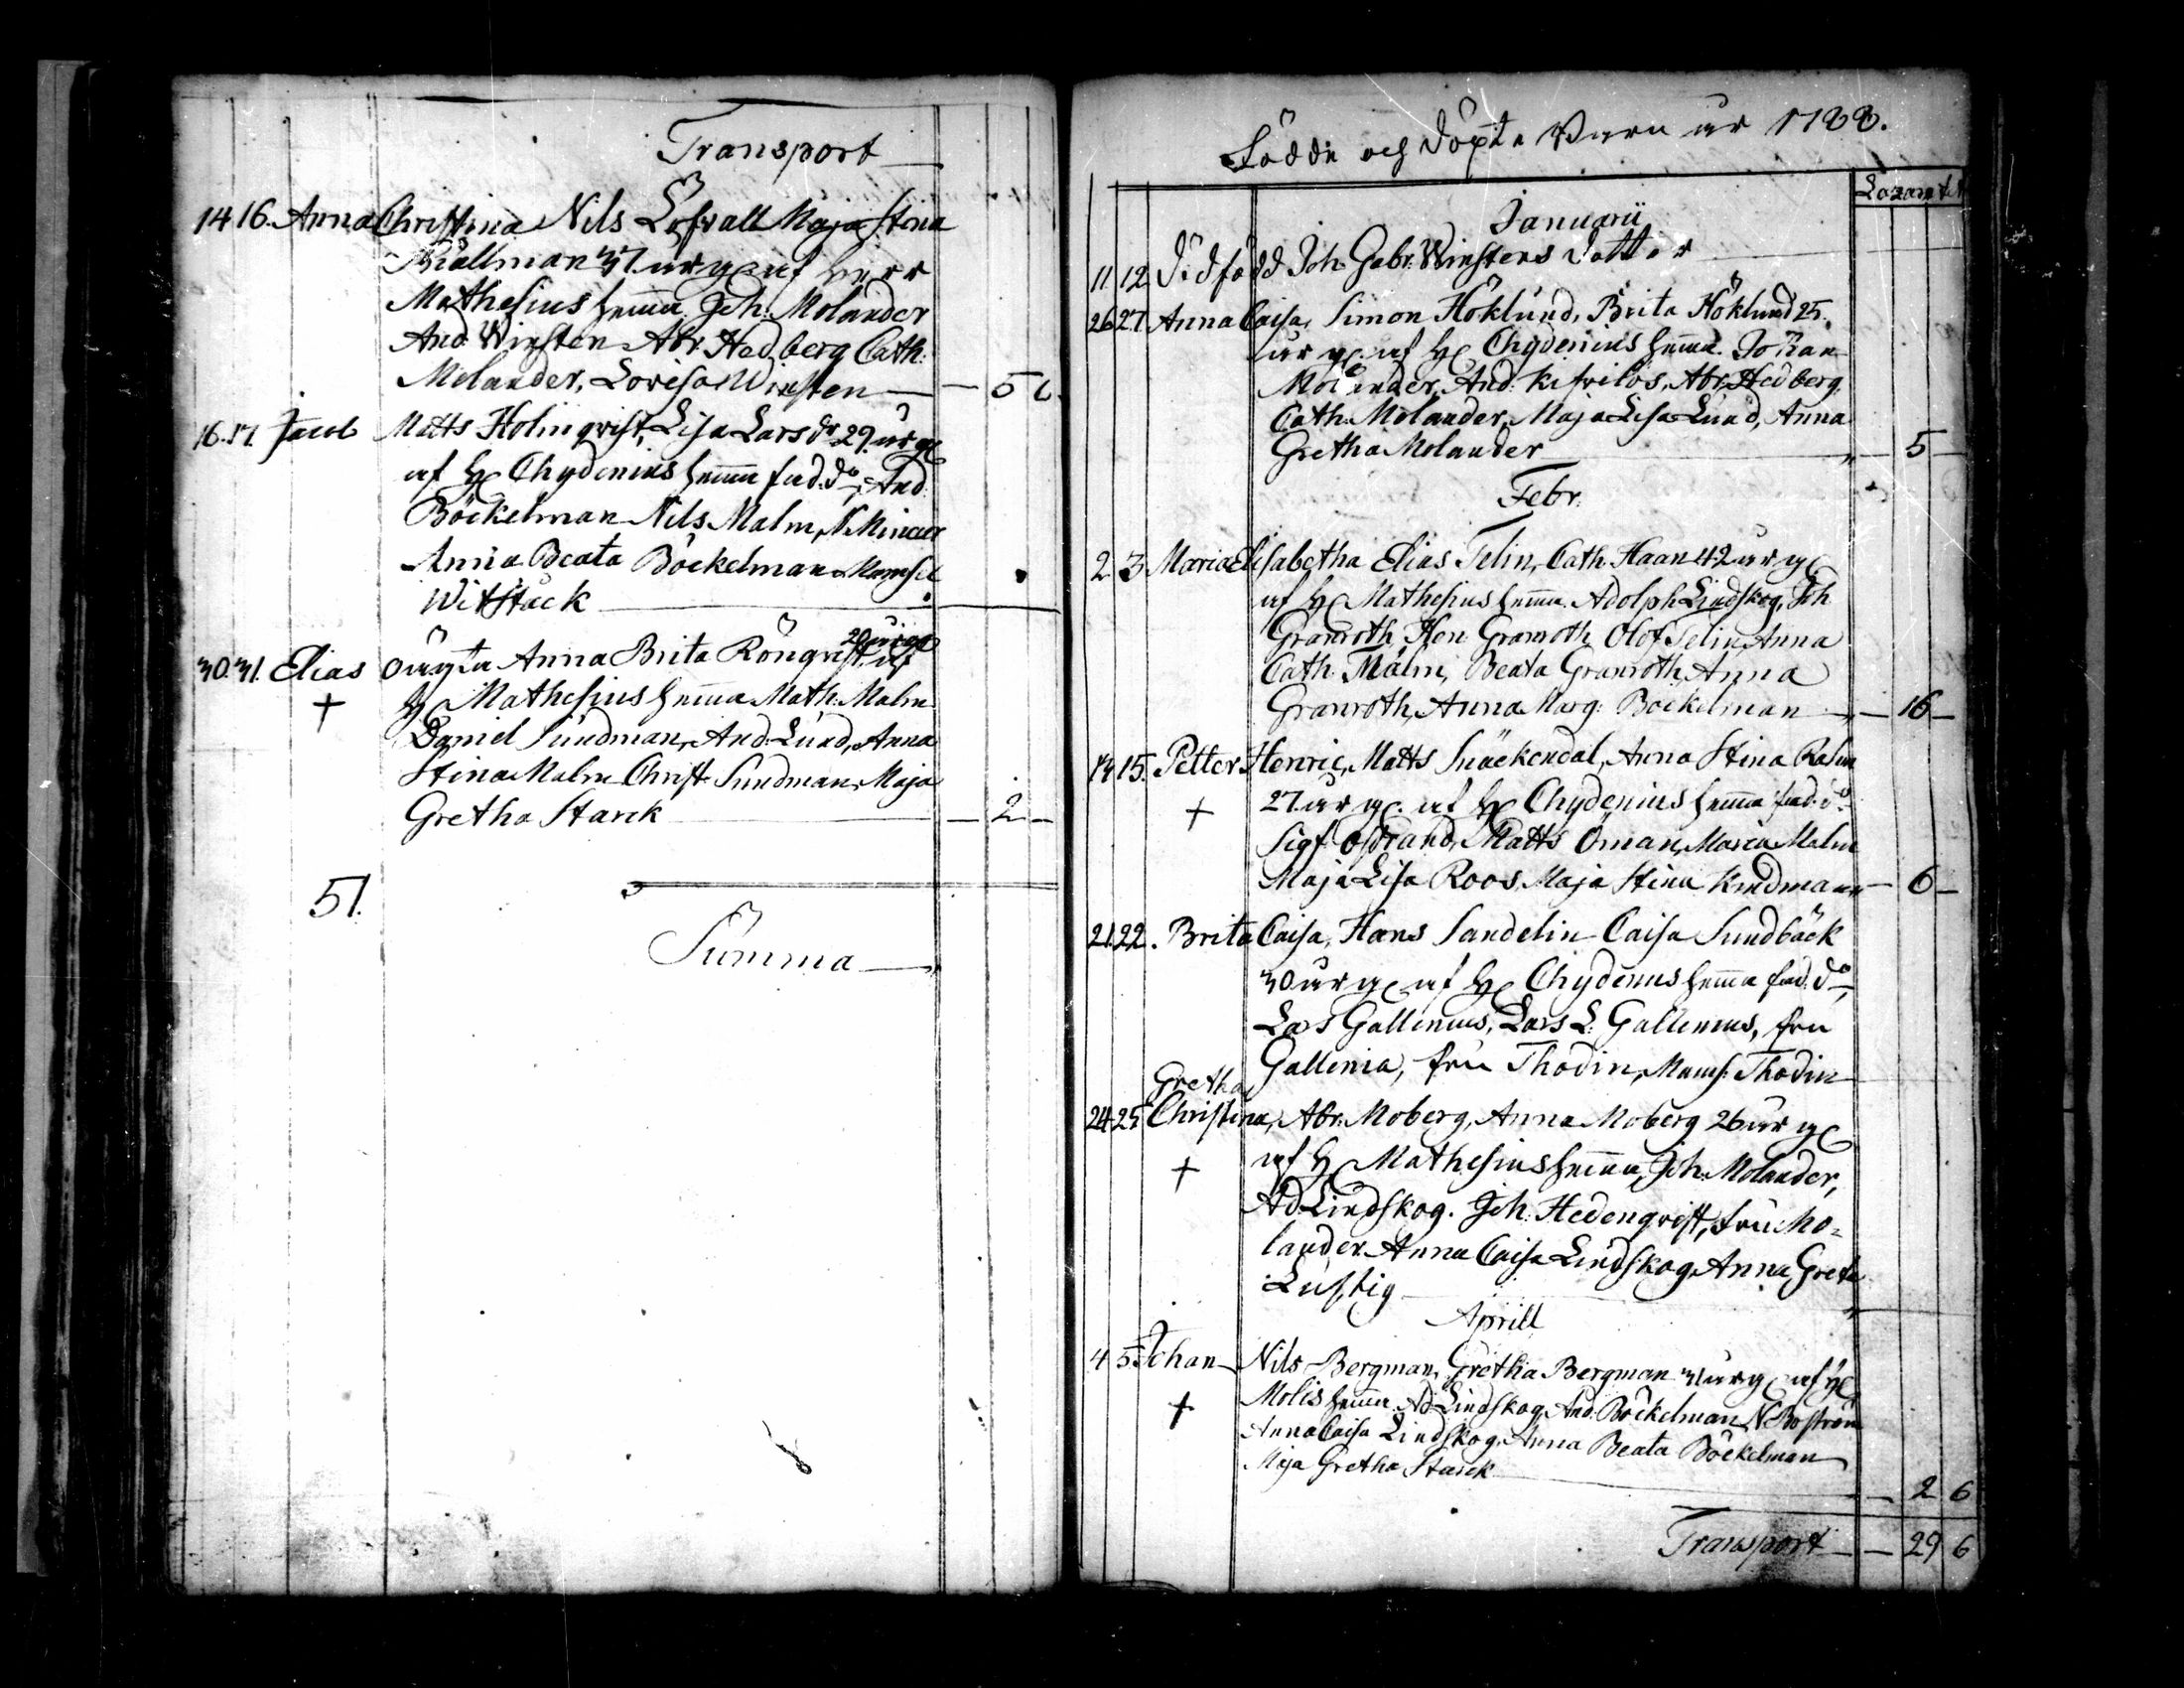 Transport
14 16. Anna Christina Nils Löfvall Maja Stina
Kiällman 37 år gl af herr
Mathesius hemma Joh: Molander
And Winsten Abr. Hedberg Cath:
Molander, Lovisa Winsten — 5
16. 17. Jacob Matts Holmqvist, Lisa Larsdr 29 år gl
af H Chydenius hemma fad. do, And:
Böckelman Nils Malm, N
Anna Beata Böckelman Mamsel
Witstock
30. 31. Elias oägta Anna Brita Rönqvist 20 år gl af
H Mathesius hemma Math: Malm
+
Daniel Sundman, And: Lund, Anna
Stina Malm Christ Sundman, Maja
Gretha Starck — 2 —
51.
Summa
Födde och Döpte Barn år 1788.
Lazaret
Januarii
11 12 Dödfödd Joh. Gabr. Winstens Dotter
26 27 Anna Caisa, Simon Höklund, Brita Höklund 25.
år gl. af H Chydenius hemma. Johan
Molander, And: , Abr. Hedberg,
Cath. Molander, Maja Lisa Lund, Anna
Gretha Molander — 5 —
Febr:
2 3 Maria Elisabetha Elias Telin, Cath. Haan 42 år gl
af H Mathesius hemma. Adolph Lindskog, Joh
Granroth, Hen Granroth Olof Telin Anna
Cath. Malm, Beata Granroth, Anna
Granroth, Anna Marg: Böckelman — 16 —
14 15. Petter Henric, Matts Snäckendal, Anna Stina
+
27 år gl. af H Chydenius hemma fad. do
Sigf: Östrand, Matts Öman, Maria Malm
Maja Lisa Roos, Maja Stina Kindman — 6 —
21. 22. Brita Caisa, Hans Sandelin Caisa Sundbäck
30 år gl af H Chydenius hemma fad. do,
Lars Gallenius, Lars L: Gallenius, fru
Gallenia, fru Thodin, Mams: Thodin
Gretha
24 25 Christina, Abr. Moberg, Anna Moberg 26 år gl
+
af H Mathesius hemma, Joh: Molander,
Ad. Lindskog. Joh: Hedenqvist, fru Mo-
lander Anna Caisa Lindskog, Anna Greta
Lustig
Aprill
4 5. Johan Nils Bergman, Gretha Bergman 31 år gl af H
+
Molis hemma Ad Lindskog, And: Böckelman N Boström
Anna Caisa Lindskog, Anna Beata Böckelman
Maja Gretha Starck — 2 6
Transport — 29 6